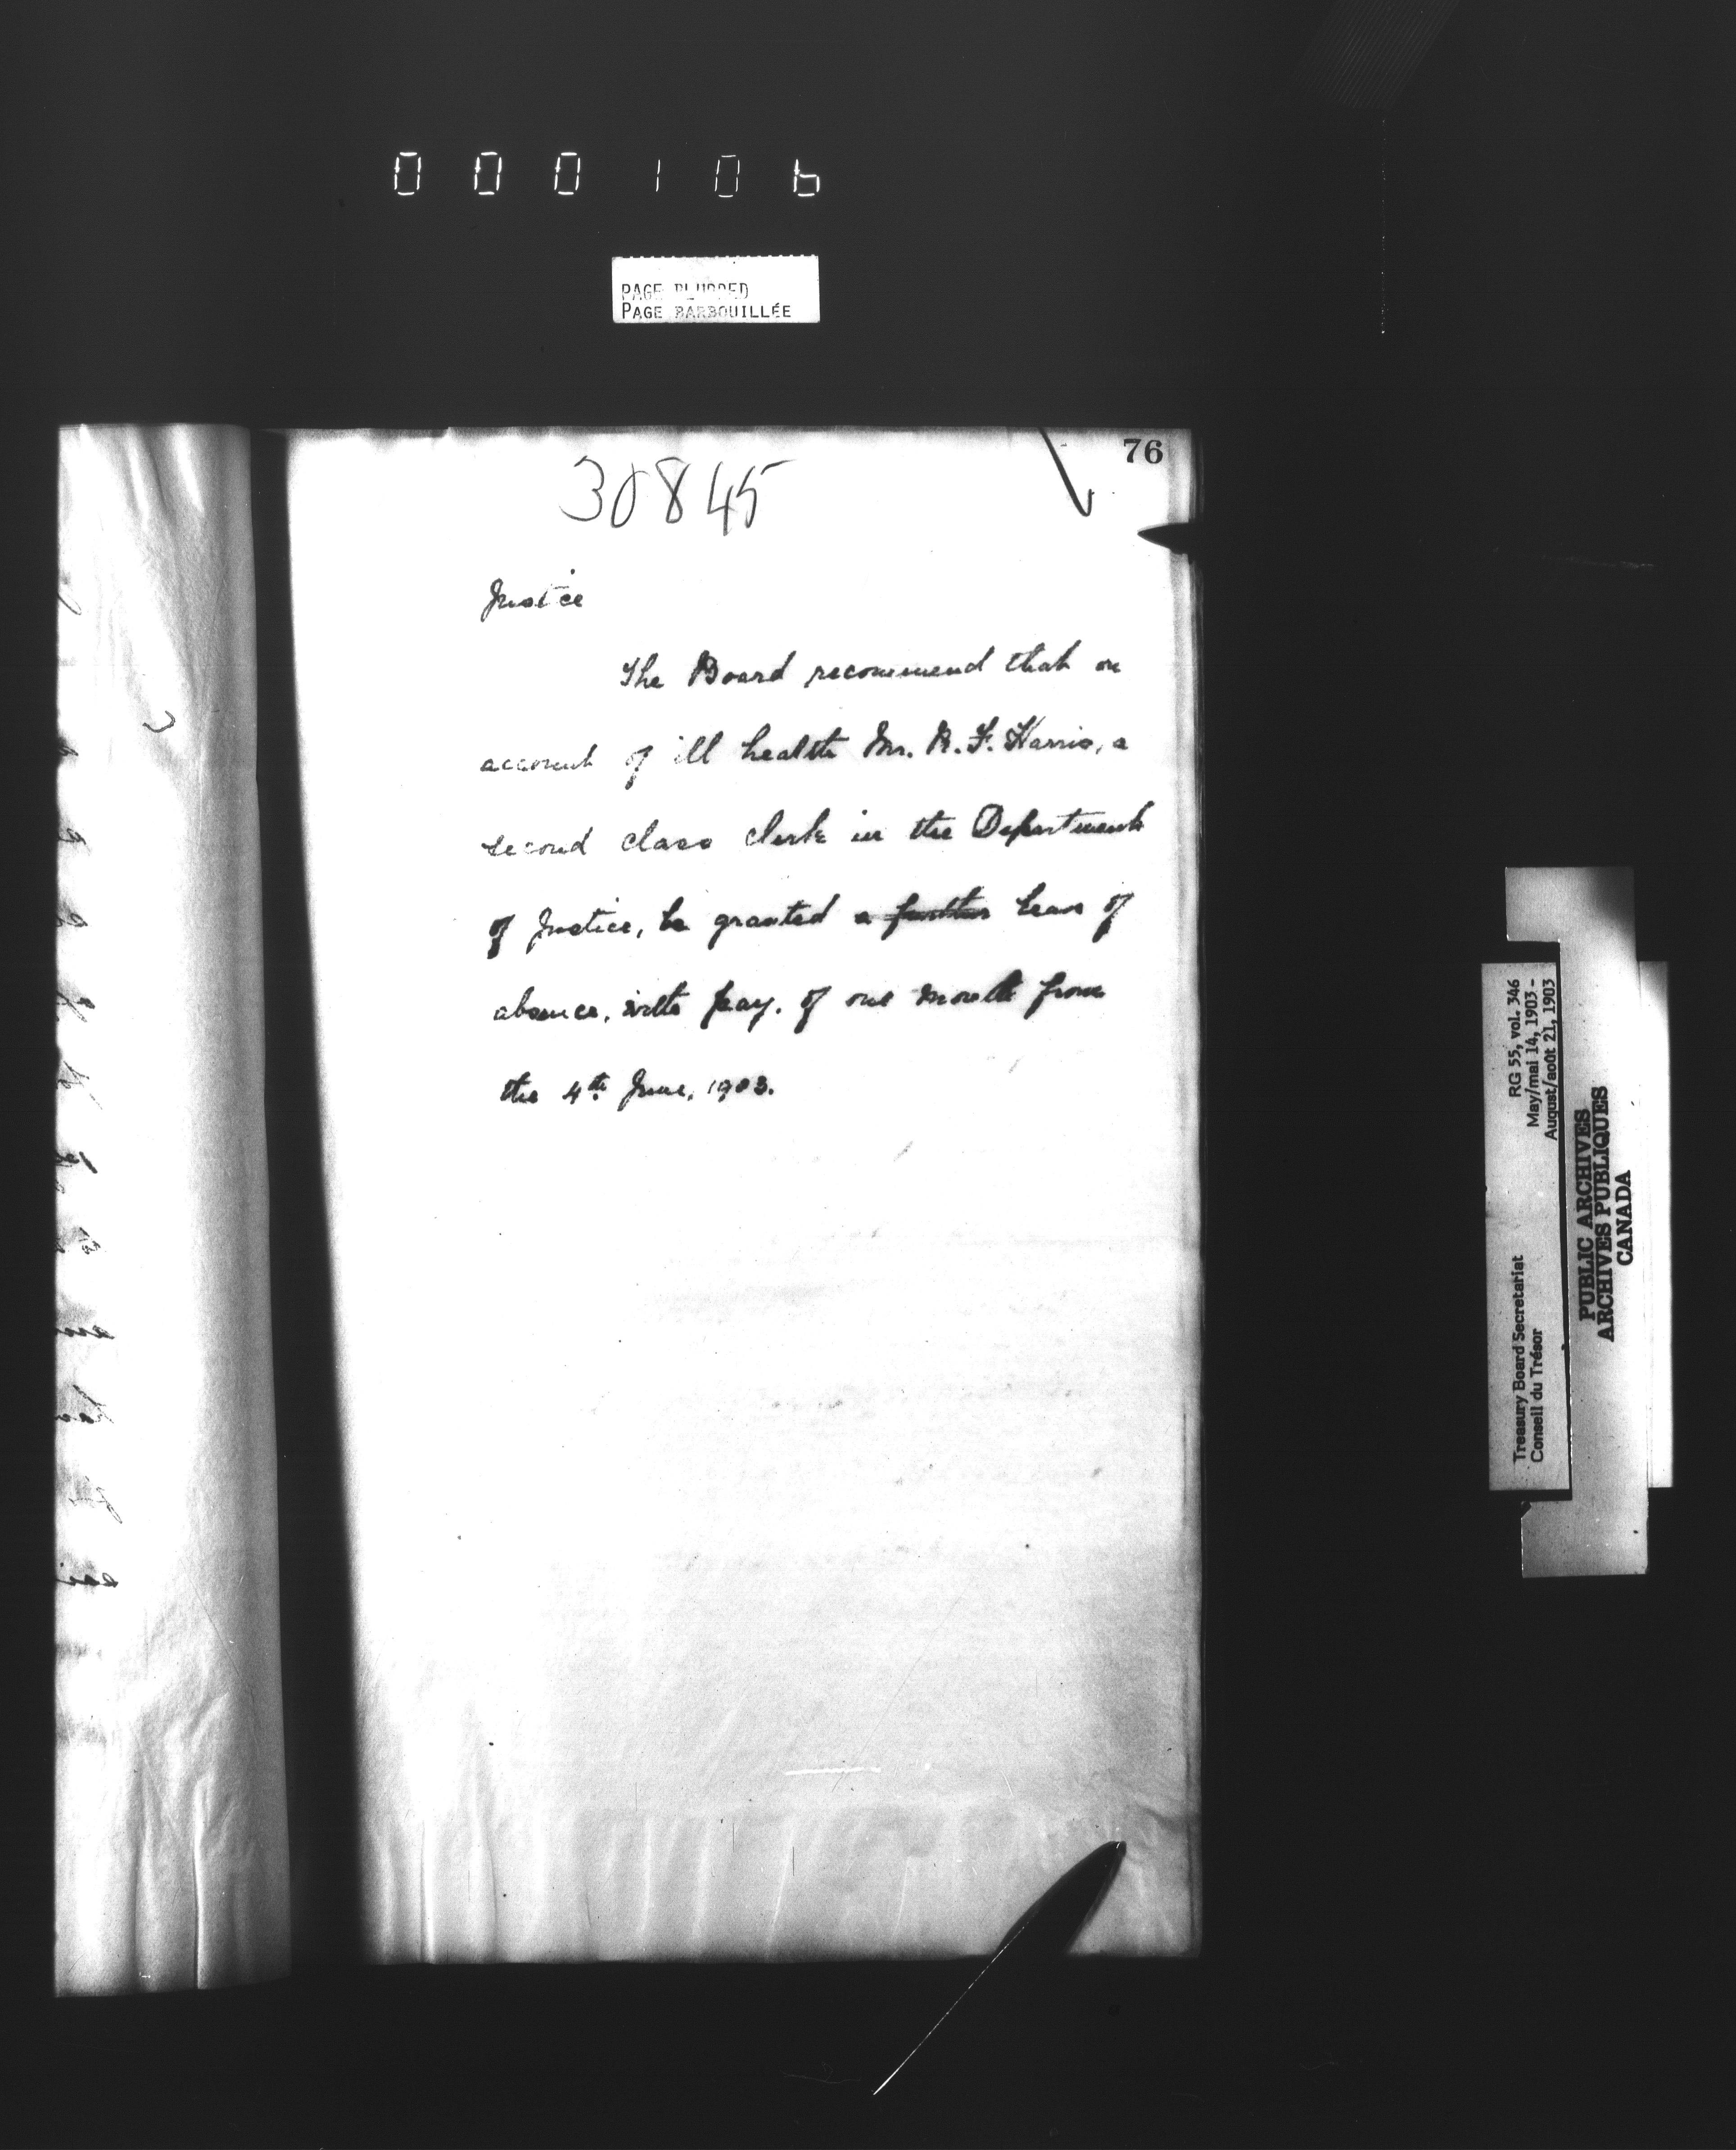 000106
PAGE BLURRED
PAGE BARBOUILLÉE
76
30845
Justice
The Board recommend that on
account of ill health Mr. R. F. Harris, a
second class clerk in the Department
of Justice, be granted a further leave of
absence, with pay, of one month from
the 4th June, 1903.
Treasury Board Secretariat
Conseil du Trésor
RG 55, vol. 346
May/mai 14, 1903 -
August/août 21, 1903
PUBLIC ARCHIVES
ARCHIVES PUBLIQUES
CANADA